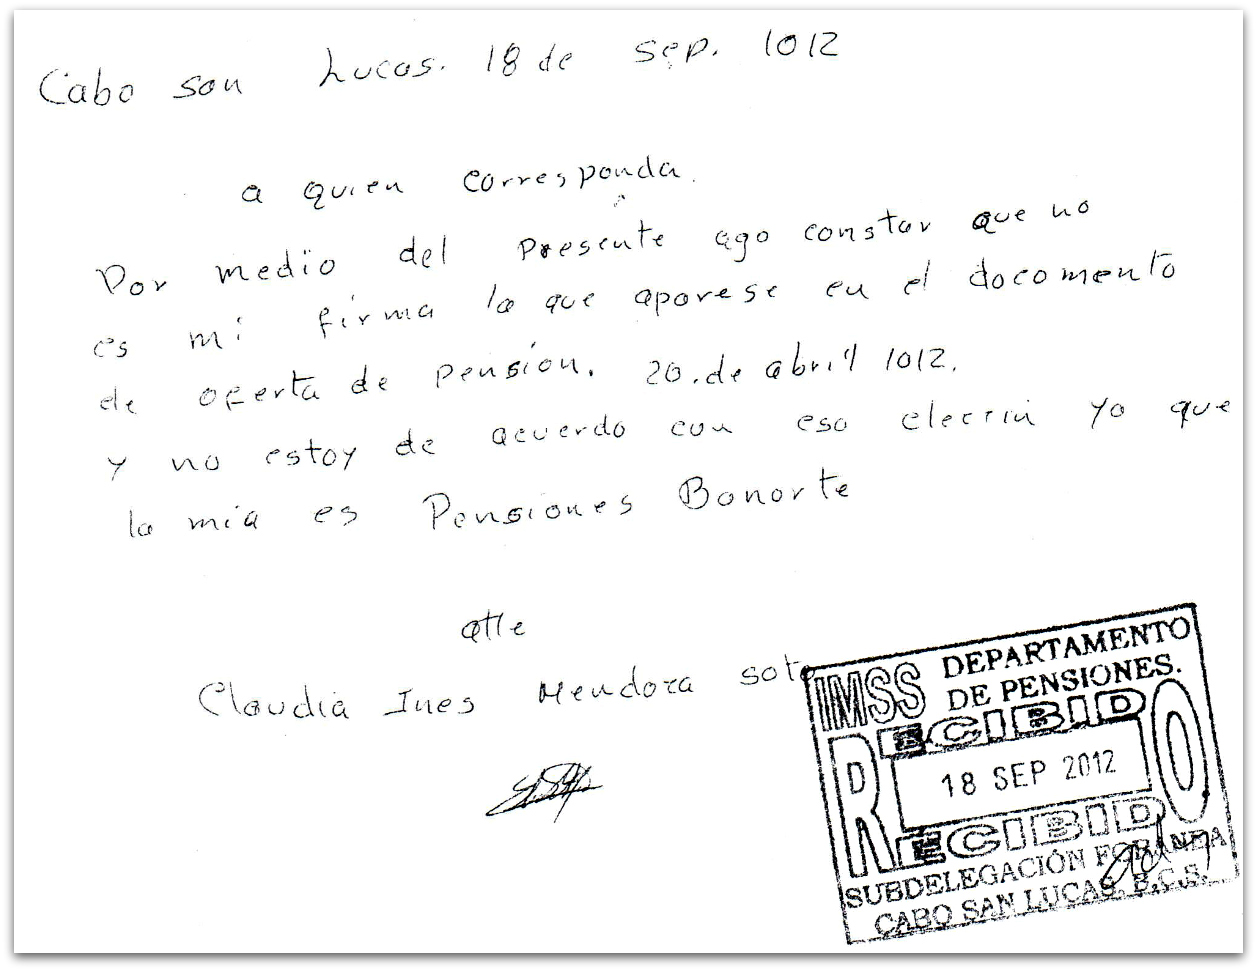 Cabo san Lucas. 18 de sep. 1012
a quien corresponda.
Por medio del presente ago constar que no
es mi firma la que aparese en el documento
de oferta de pensión. 20. de abril 1012.
y no estoy de acuerdo con eso eleccin yo que
la mia es Pensiones Bonorte
atte
Claudia Ines Mendoza soto
IMSS DEPARTAMENTO
DE PENSIONES.
RECIBIDO
18 SEP 2012
RECIBIDO
SUBDELEGACIÓN FORANEA
CABO SAN LUCAS, B.C.S.